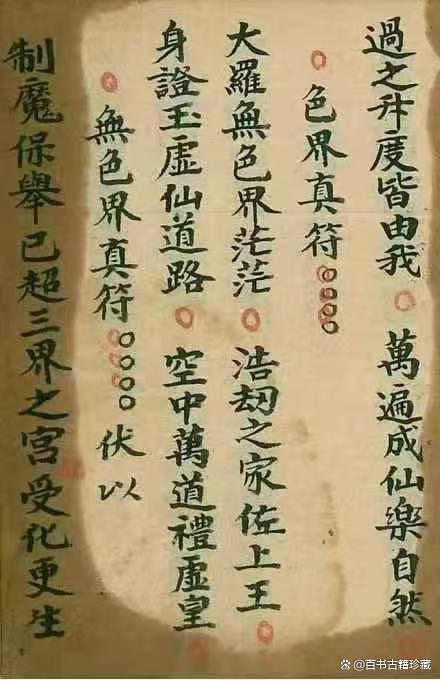 過之升度皆由我 萬遍成仙樂自然
色界真符
大羅無色界茫茫 浩劫之家佐上王
身證玉虛仙道路 空中萬道禮虛皇
無色界真符 伏以
制魔保舉已超三界之宮受化更生
百书古籍珍藏